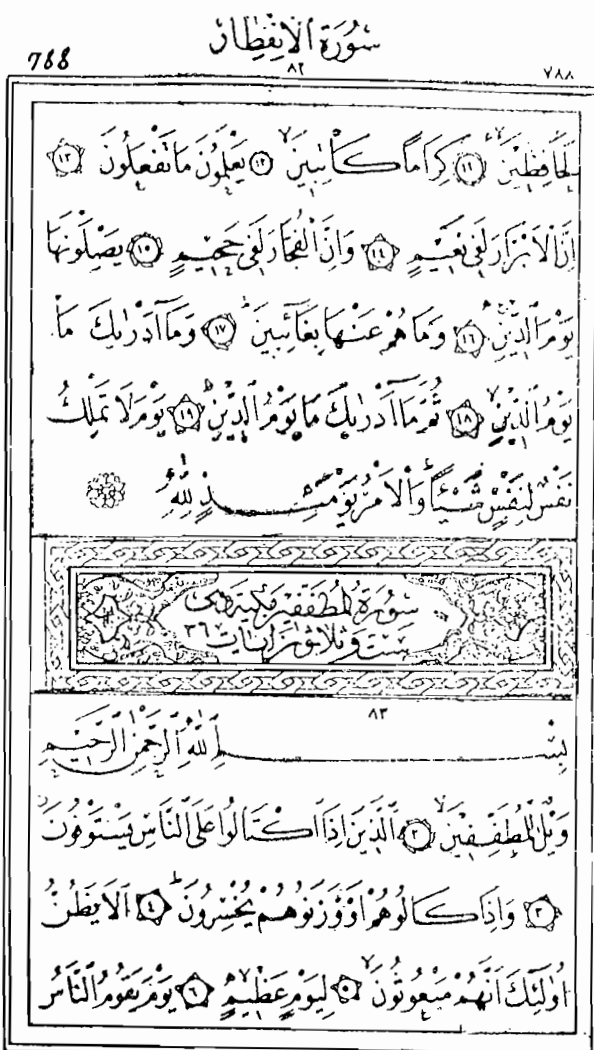 سُورَةُ الْاِنْفِطَارِ
788
٨٢
٧٨٨
لَحَافِظِينَ ۙ ﴿١١﴾ كِرَامًا كَاتِبِينَ ۙ ﴿١٢﴾ يَعْلَمُونَ مَا تَفْعَلُونَ ﴿١٣﴾
اِنَّ الْاَبْرَارَ لَفِى نَعِيمٍ ﴿١٤﴾ وَاِنَّ الْفُجَّارَ لَفِى جَحِيمٍ ﴿١٥﴾ يَصْلَوْنَهَا
يَوْمَ الدِّينِ ﴿١٦﴾ وَمَا هُمْ عَنْهَا بِغَآئِبِينَ ۗ ﴿١٧﴾ وَمَآ اَدْرٰيكَ مَا
يَوْمُ الدِّينِ ۙ ﴿١٨﴾ ثُمَّ مَآ اَدْرٰيكَ مَا يَوْمُ الدِّينِ ۗ ﴿١٩﴾ يَوْمَ لَا تَمْلِكُ
نَفْسٌ لِنَفْسٍ شَيْـًٔا ۗ وَالْاَمْرُ يَوْمَئِذٍ لِلّٰهِ
سُورَةُ الْمُطَفِّفِينَ مَكِّيَّةٌ وَهِىَ
سِتٌّ وَثَلَاثُونَ اٰيَاتٍ ٣٦
٨٣
بِسْمِ اللّٰهِ الرَّحْمٰنِ الرَّحِيمِ
وَيْلٌ لِلْمُطَفِّفِينَ ۙ ﴿٢﴾ اَلَّذِينَ اِذَا اكْتَالُوا عَلَى النَّاسِ يَسْتَوْفُونَ ۙ
﴿٣﴾ وَاِذَا كَالُوهُمْ اَوْ وَزَنُوهُمْ يُخْسِرُونَ ۗ ﴿٤﴾ اَلَا يَظُنُّ
اُولٰٓئِكَ اَنَّهُمْ مَبْعُوثُونَ ۙ ﴿٥﴾ لِيَوْمٍ عَظِيمٍ ۙ ﴿٦﴾ يَوْمَ يَقُومُ النَّاسُ